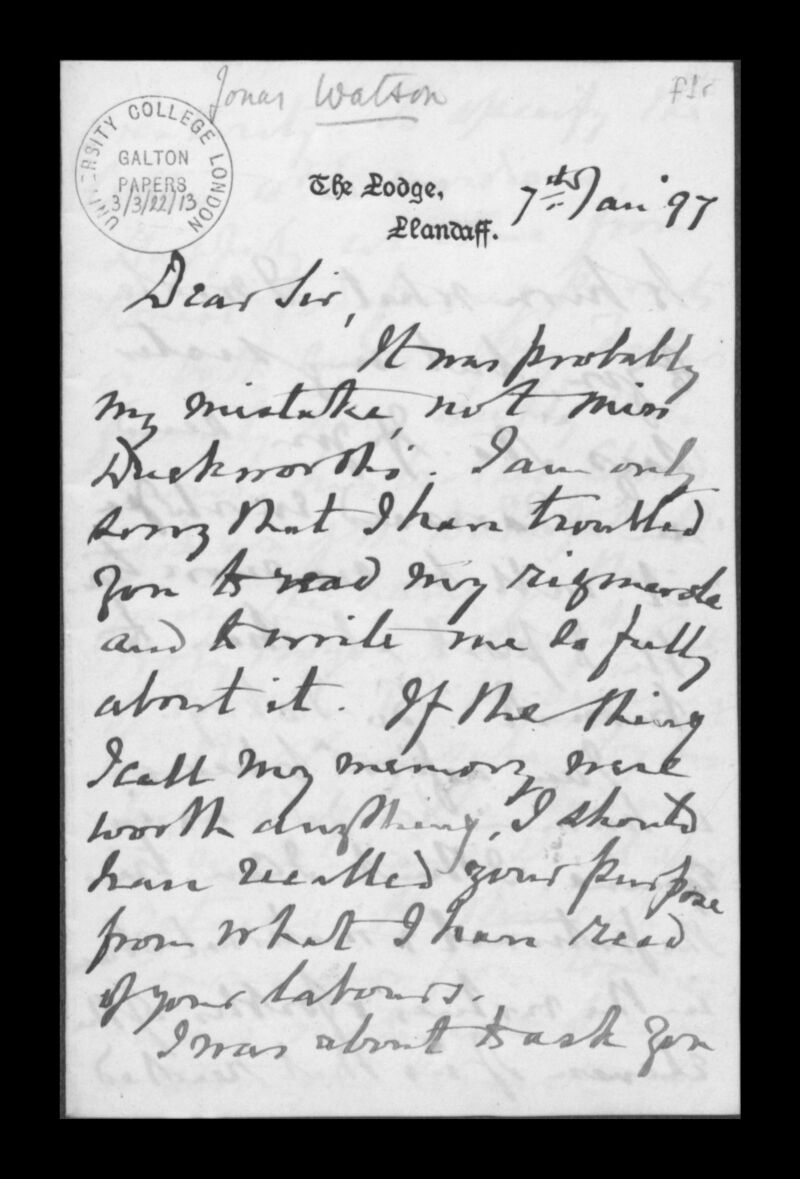 Jonas Watson
f1r
UNIVERSITY COLLEGE LONDON
GALTON
PAPERS
3/3/22/13
The Lodge,
Llandaff.
7th Jan 97
Dear Sir,
It was probably
my mistake, not Miss
Duckworth's. I am only
sorry that I have troubled
you to read my rigmarole
and to write me so fully
about it. If the thing
I call my memory were
worth anything, I should
have recalled your purpose
from what I have read
of your labours.
I was about to ask you